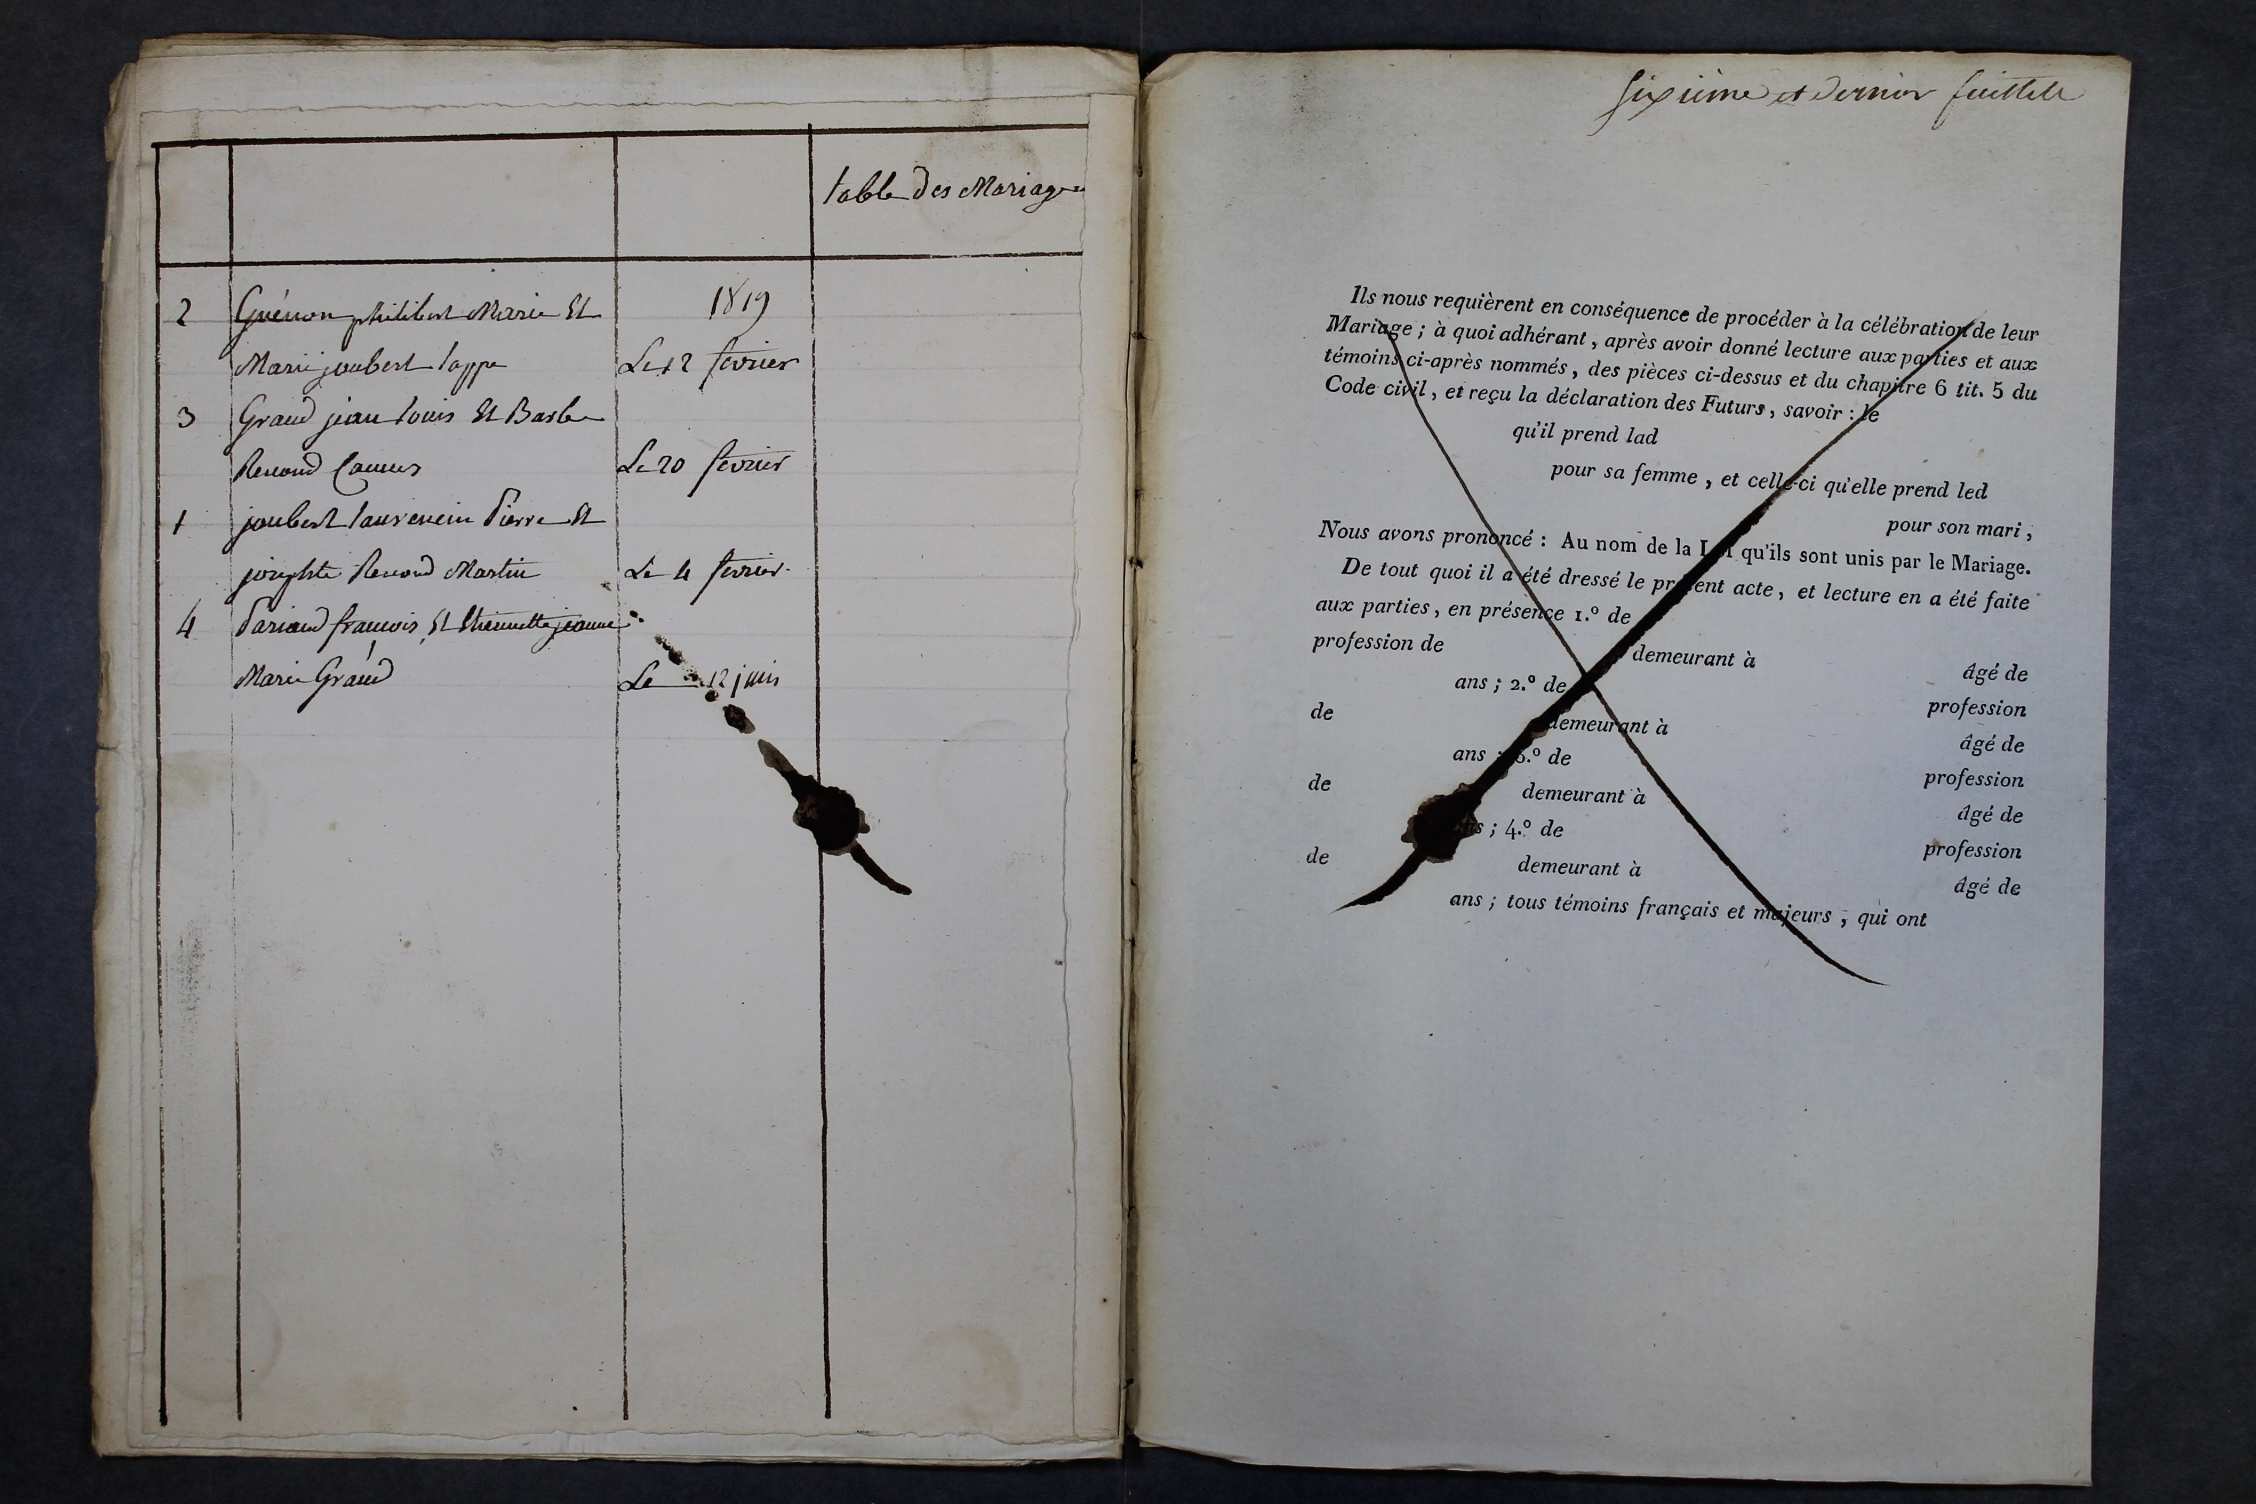 table des Mariages
1819
2 Guénon philibert Marie Et
Marie joubert lappe Le 12 fevrier
3 Graud jean louis Et Barbe
Renaud Camus Le 20 fevrier
1 joubert laurencin Pierre Et
josephte Renaud Martin Le 4 fevrier
4 Pariaud francois Et Etiennette jeanne
Marie Graud Le 12 juin
Sixième et dernier feuillet
Ils nous requièrent en conséquence de procéder à la célébration de leur
Mariage ; à quoi adhérant , après avoir donné lecture aux parties et aux
témoins ci-après nommés , des pièces ci-dessus et du chapitre 6 tit. 5 du
Code civil , et reçu la déclaration des Futurs , savoir : le
qu'il prend lad
pour sa femme , et celle-ci qu'elle prend led
pour son mari ,
Nous avons prononcé : Au nom de la LOI qu'ils sont unis par le Mariage.
De tout quoi il a été dressé le présent acte , et lecture en a été faite
aux parties , en présence 1.º de
profession de demeurant à âgé de
ans ; 2.º de profession
de demeurant à âgé de
ans ; 3.º de profession
de demeurant à âgé de
ans ; 4.º de profession
de demeurant à âgé de
ans ; tous témoins français et majeurs , qui ont